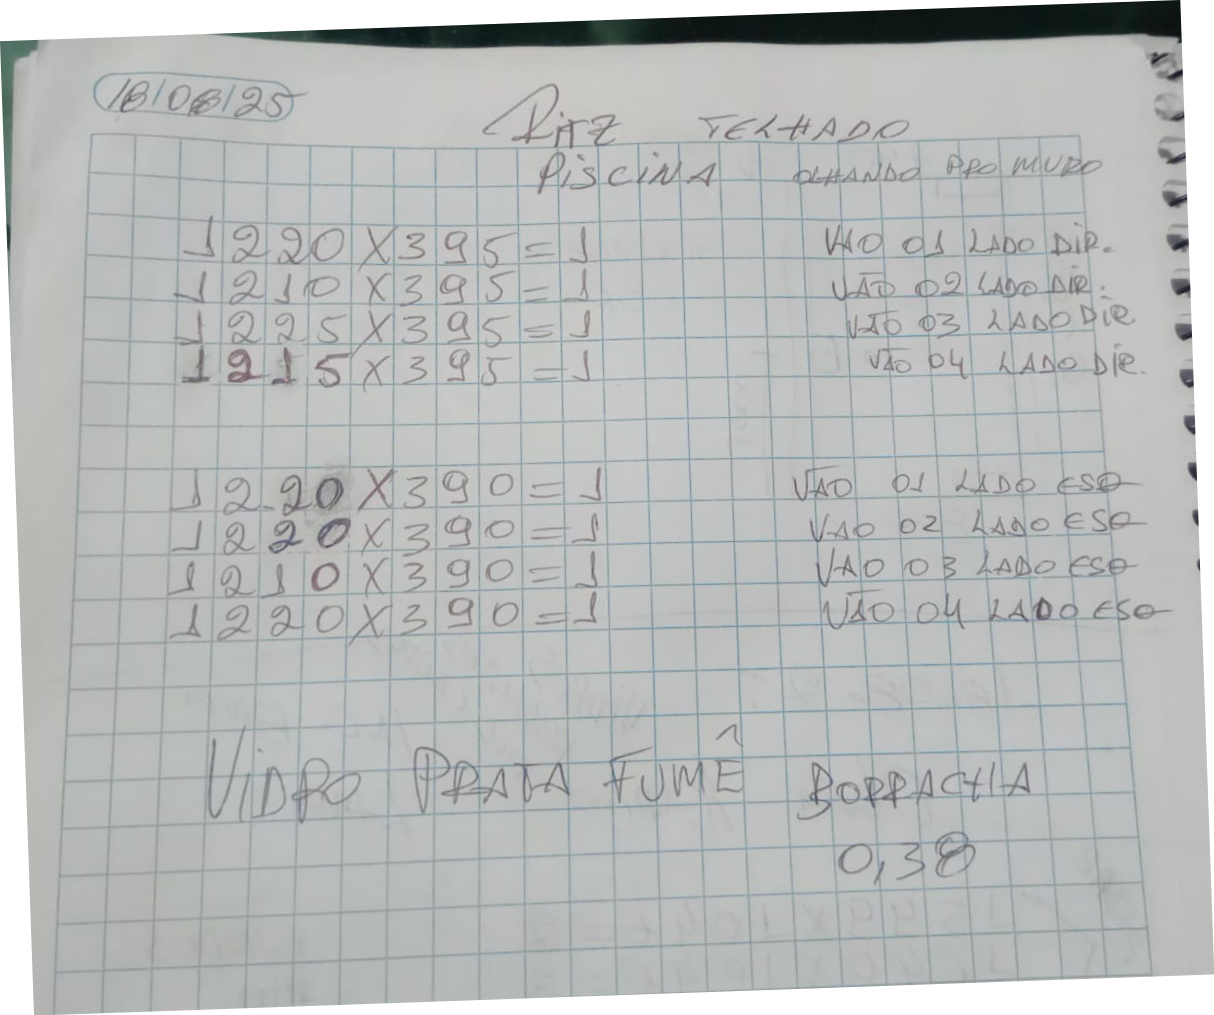 18/08/25
Ritz TELHADO
PISCINA OLHANDO PRO MURO
1220X395=1 VAO 01 LADO DIR.
1210X395=1 VÃO 02 LADO DIR.
1225X395=1 VÃO 03 LADO DIR
1215X395=1 VÃO 04 LADO DIR.
1220X390=1 VÃO 01 LADO ESQ
1220X390=1 VAO 02 LADO ESQ
1210X390=1 VAO 03 LADO ESQ
1220X390=1 VÃO 04 LADO ESQ
VIDRO PRATA FUMÊ BORRACHA
0,38